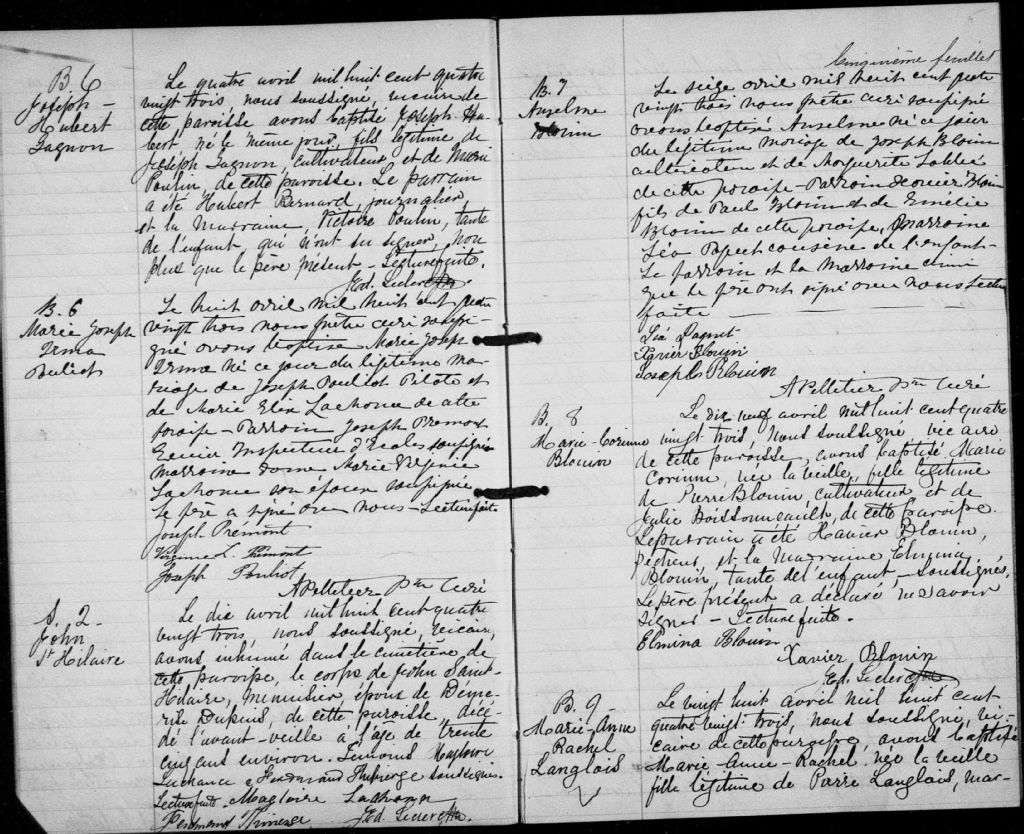 B. 6
Joseph-
Hubert
Gagnon
Le quatre avril mil huit cent quatre
vingt trois, nous soussigné, vicaire de
cette paroisse avons baptisé Joseph Hu-
bert, né le même jour, fils légitime de
Joseph Gagnon, cultivateur, et de Marie
Poulin, de cette paroisse. Le parrain
a été Hubert Bernard, journalier,
et la Marraine, Victoire Poulin, tante
de l'enfant, qui n'ont su signer, non
plus que le père présent - Lecture faite.
Ed. Leclerc Ptre
B. 6
Marie Joseph
Irma
Pouliot
Le huit avril mil huit cent quatre
vingt trois nous prêtre curé soussi-
gné avons baptisé Marie Joseph
Irma né ce jour du légitime ma-
riage de Joseph Pouliot Pilote et
de Marie Elix Lachance de cette
paroisse - Parrain Joseph Prémont
Ecuier Inspecteur d'Ecoles soussigné
marraine dame Marie Virginie
Lachance son épouse soussignée
le père a signé avec nous - Lecture faite
Joseph Prémont
Virginie L. Prémont
Joseph Pouliot
A Pelletier Ptre Curé
S. 2 -
John
St Hilaire
Le dix avril mil huit cent quatre
vingt trois, nous soussigné, vicaire,
avons inhumé dans le cimetière de
cette paroisse, le corps de John Saint-
Hilaire, Menuisier époux de Déme-
rise Dupuis, de cette paroisse, décé-
dé l'avant-veille à l'âge de trente
cinq ans environ. Témoins Magloire
Lachance & Ferdinand Thiberge soussignés.
Lecture faite. Magloire Lachance
Ferdinand Ed. Leclerc Ptre
Cinquième feuillet
B. 7
Anselme
Blouin
Le seize avril mil huit cent quatre
vingt trois nous prêtre curé soussigné
avons baptisé Anselme né ce jour
du légitime mariage de Joseph Blouin
cultivateur et de Marguerite
de cette paroisse - Parrain Xavier Blouin
fils de Paul Blouin et de Emélie
Blouin de cette paroisse, Marraine
Léa cousine de l'enfant -
Le parrain et la Marraine ainsi
que le père ont signé avec nous Lecture
faite
Léa
Xavier Blouin
Joseph Blouin
A Pelletier Ptre Curé
B. 8
Marie-Corinne
Blouin
Le dix neuf avril mil huit cent quatre
vingt trois, Nous soussigné, vicaire
de cette paroisse, avons baptisé Marie
Corinne, née la veille, fille légitime
de Pierre Blouin, cultivateur et de
Julie Boissonneault, de cette paroisse.
Le parrain a été Xavier Blouin,
pêcheur, et la Marraine Elmina
Blouin, tante de l'enfant, - soussignés,
Le père présent a déclaré ne savoir
signer - Lecture faite.
Elmina Blouin
Xavier Blouin
Ed. Leclerc Ptre
B. 9 -
Marie-Anne
Rachel
Langlois
Le vingt huit avril mil huit cent
quatre vingt trois, nous soussigné, vi-
caire de cette paroisse, avons baptisé
Marie-Anne-Rachel, née la veille
fille légitime de Pierre Langlois, mar-